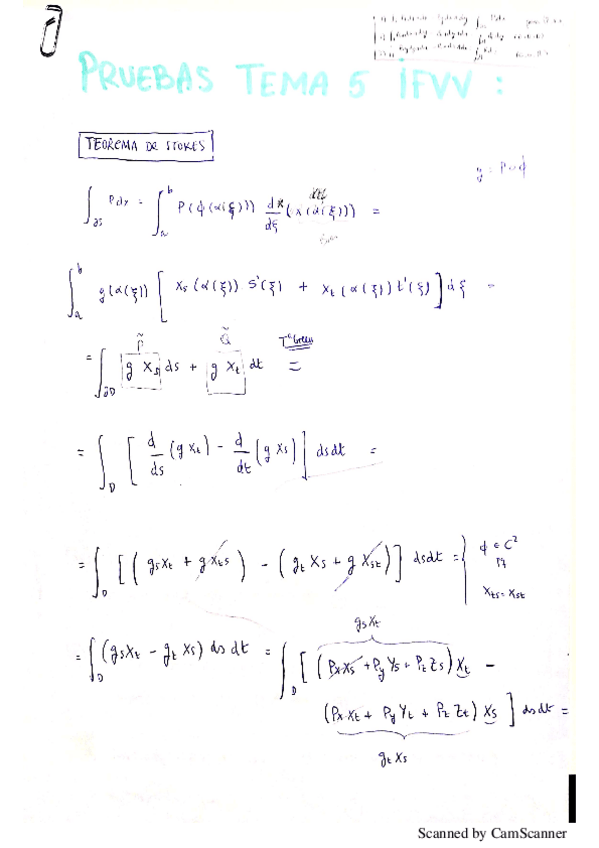 PRUEBAS TEMA 5 IFVV :
TEOREMA DE STOKES
g = P∘ϕ
∫_∂S P dx = ∫_a^b P(ϕ(α(ξ))) d/dξ (x(α(ξ))) =
∫_a^b g(α(ξ)) [ x_s(α(ξ)) s'(ξ) + x_t(α(ξ)) t'(ξ) ] dξ =
P̃ Q̃
= ∫_∂D g x_s ds + g x_t dt T^a Green =
= ∫_D [ d/ds (g x_t) - d/dt (g x_s) ] ds dt =
= ∫_D [ (g_s x_t + g x_ts) - (g_t x_s + g x_st) ] ds dt = { ϕ ∈ C²
x_ts = x_st
g_s x_t
= ∫_D (g_s x_t - g_t x_s) ds dt = ∫_D [ (P_x x_s + P_y y_s + P_z z_s) x_t -
(P_x x_t + P_y y_t + P_z z_t) x_s ] ds dt =
g_t x_s
Scanned by CamScanner